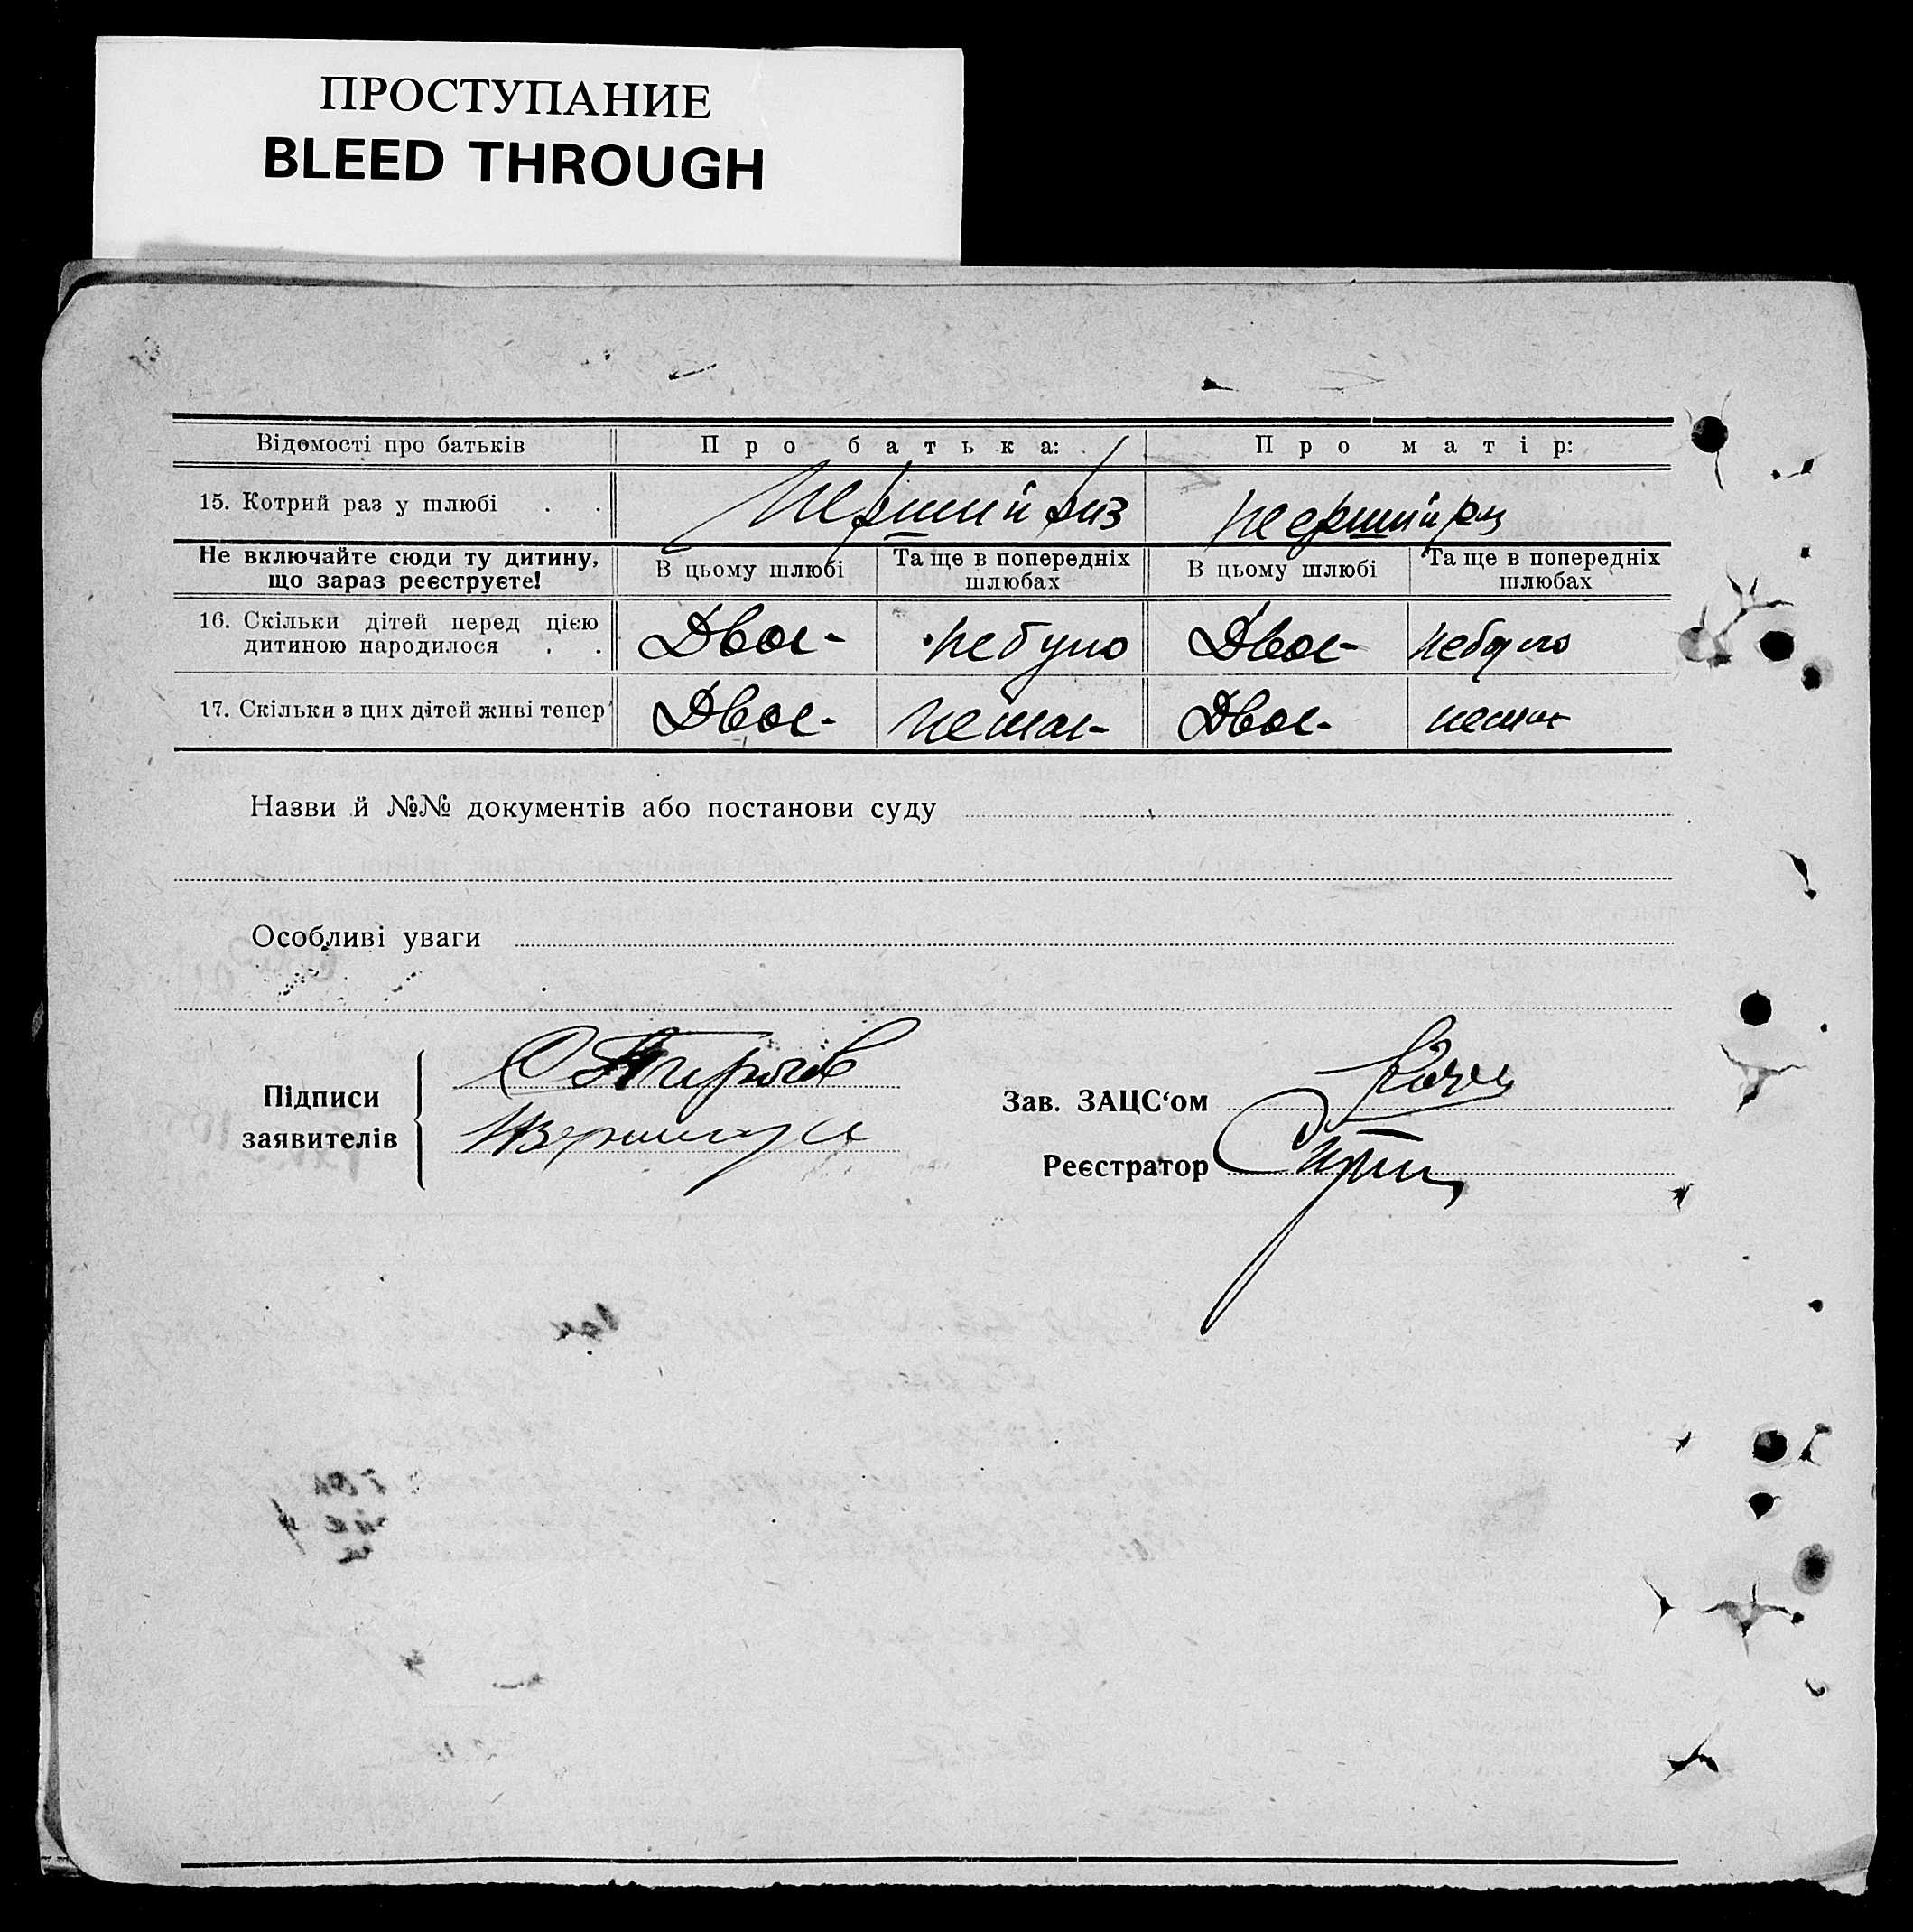 ПРОСТУПАНИЕ
BLEED THROUGH
Відомості про батьків Про батька: Про матір:
15. Котрий раз у шлюбі . . Перший раз перший раз
Не включайте сюди ту дитину, що зараз реєструєте! В цьому шлюбі Та ще в попередніх шлюбах В цьому шлюбі Та ще в попередніх шлюбах
16. Скільки дітей перед цією дитиною народилося . . Двоє- небуло Двоє- небуло
17. Скільки з цих дітей живі тепер Двоє- немає- Двоє- немає
Назви й №№ документів або постанови суду
Особливі уваги
Підписи заявителів
Зав. ЗАЦС‘ом
Реєстратор